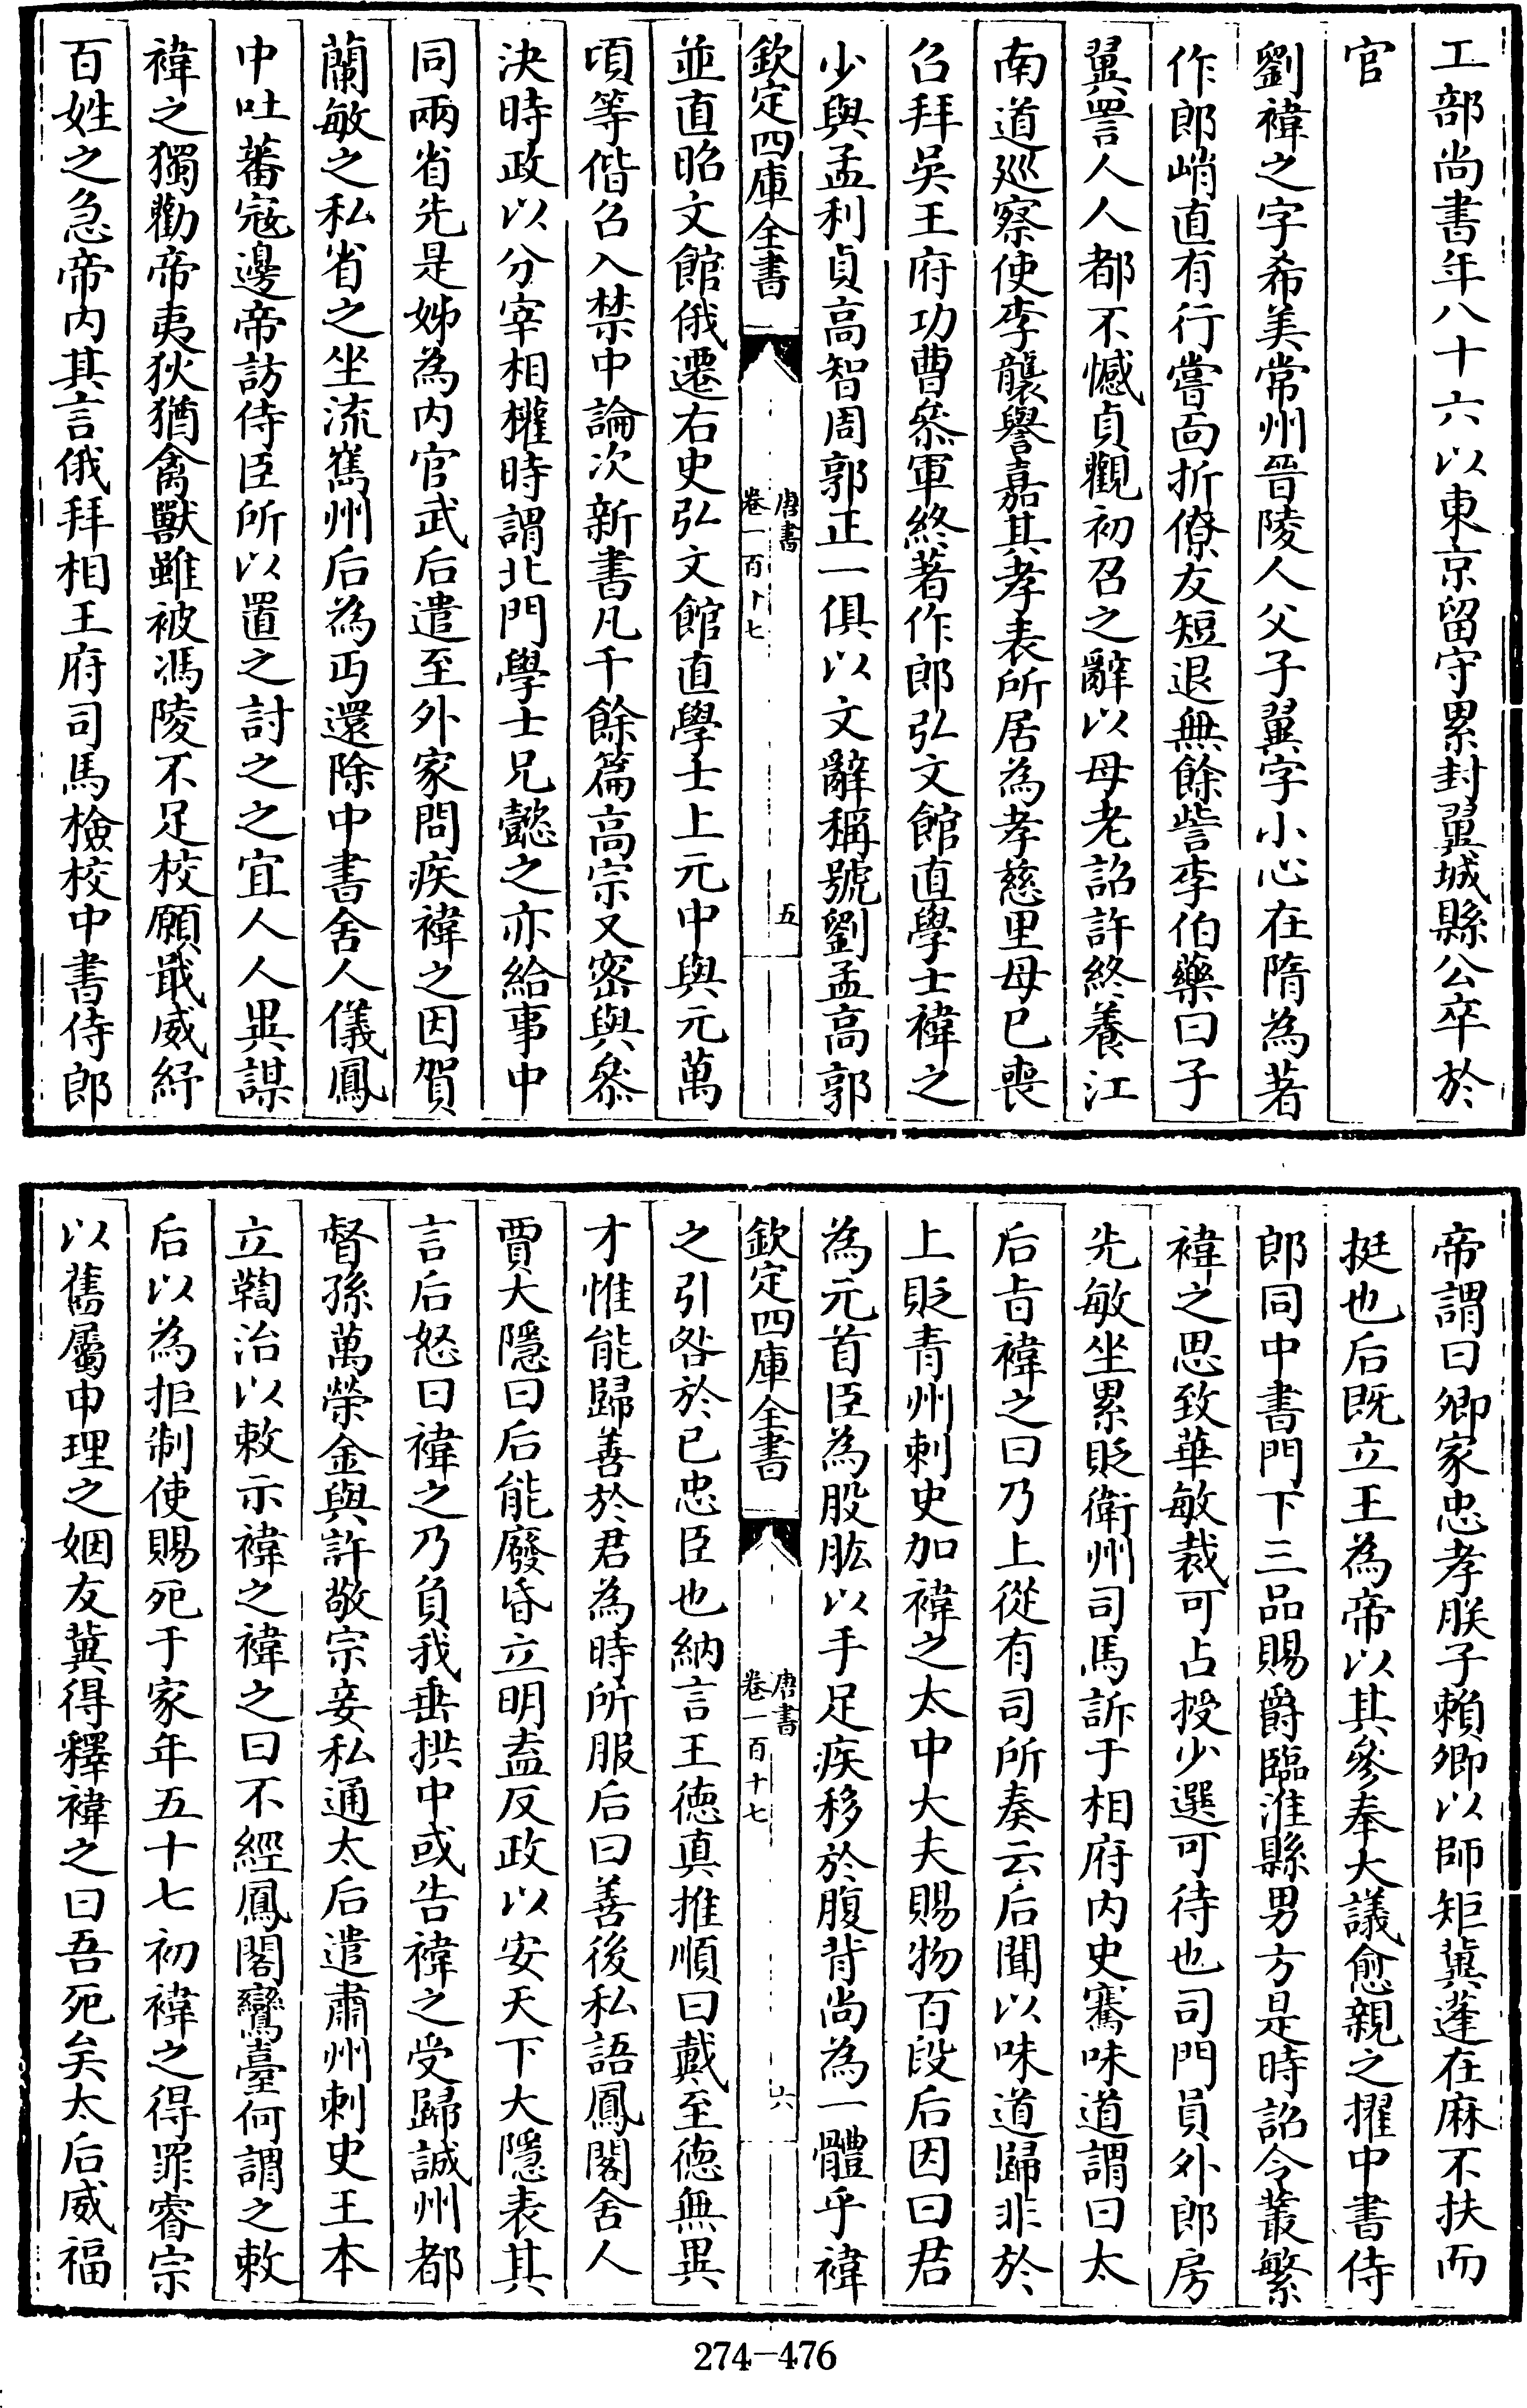 工部尚書年八十六以東京留守累封翼城縣公卒於
官
劉禕之字希美常州晉陵人父子翼字小心在隋為著
作郎峭直有行嘗面折僚友短退無餘訾李伯藥曰子
翼詈人人都不憾貞觀初召之辭以母老詔許終養江
南道廵察使李襲譽嘉其孝表所居為孝慈里母已喪
召拜吳王府功曹叅軍終著作郎弘文館直學士禕之
少與孟利貞高智周郭正一俱以文辭稱號劉孟高郭
欽定四庫全書
唐書
卷一百十七
五
並直昭文館俄遷右史弘文館直學士上元中與元萬
頃等偕召入禁中論次新書凡千餘篇高宗又密與叅
決時政以分宰相權時謂北門學士兄懿之亦給事中
同兩省先是姊為內官武后遣至外家問疾禕之因賀
蘭敏之私省之坐流嶲州后為丐還除中書舍人儀鳳
中吐蕃寇邊帝訪侍臣所以置之討之之宜人人異謀
禕之獨勸帝夷狄猶禽獸雖被馮陵不足校願戢威紓
百姓之急帝內其言俄拜相王府司馬檢校中書侍郎
帝謂曰卿家忠孝朕子賴卿以師矩冀蓬在麻不扶而
挺也后既立王為帝以其參奉大議愈親之擢中書侍
郎同中書門下三品賜爵臨淮縣男方是時詔令叢繁
禕之思致華敏裁可占授少選可待也司門員外郎房
先敏坐累貶衛州司馬訴于相府內史騫味道謂曰太
后旨禕之曰乃上從有司所奏云后聞以味道歸非於
上貶青州刺史加禕之太中大夫賜物百段后因曰君
為元首臣為股肱以手足疾移於腹背尚為一體乎禕
欽定四庫全書
唐書
卷一百十七
六
之引咎於已忠臣也納言王德真推順曰戴至德無異
才惟能歸善於君為時所服后曰善後私語鳳閣舍人
賈大隱曰后能廢昏立明盍反政以安天下大隱表其
言后怒曰禕之乃負我垂拱中或告禕之受歸誠州都
督孫萬榮金與許敬宗妾私通太后遣肅州刺史王本
立鞫治以敕示禕之禕之曰不經鳳閣鸞臺何謂之敕
后以為拒制使賜死于家年五十七初禕之得罪睿宗
以舊屬申理之姻友冀得釋禕之曰吾死矣太后威福
274-476